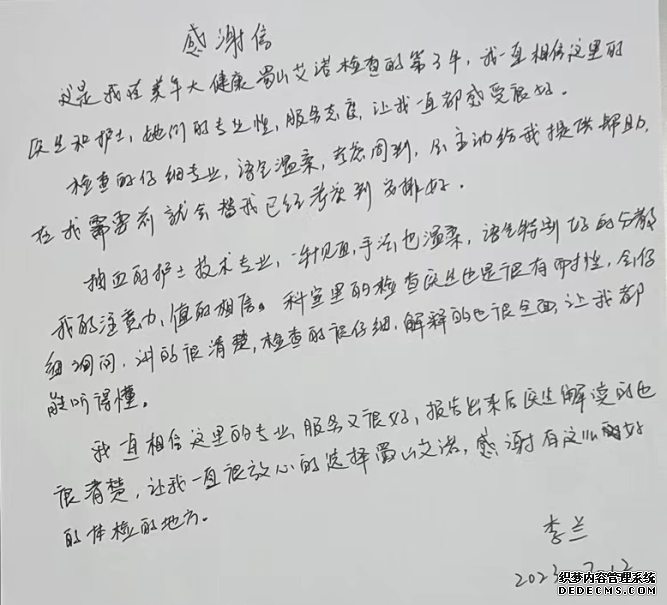 感谢信
这是我在美年大健康蜀山艾诺检查的第3年，我一直相信这里的
医生和护士，她们的专业性，服务态度，让我一直都感受很好。
检查的仔细专业，语气温柔，考虑周到，会主动给我提供帮助，
在我需要前就会替我已经考虑到安排好。
抽血的护士技术专业，一针见血，手法也温柔，语气特别好的分散
我的注意力，值的相信。科室里的检查医生也是很有耐性，会仔
细询问，讲的很清楚，检查的很仔细，解释的也很全面，让我都
能听得懂。
我一直相信这里的专业，服务又很好，报告出来后医生解读的也
很清楚，让我一直很放心的选择蜀山艾诺，感谢有这么的好
的体检的地方。
李兰
2023.7.12
织梦内容管理系统
DEDECMS.COM